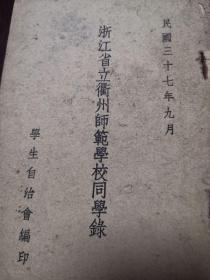 民國三十七年九月
浙江省立衢州師範學校同學錄
學生自治會編印